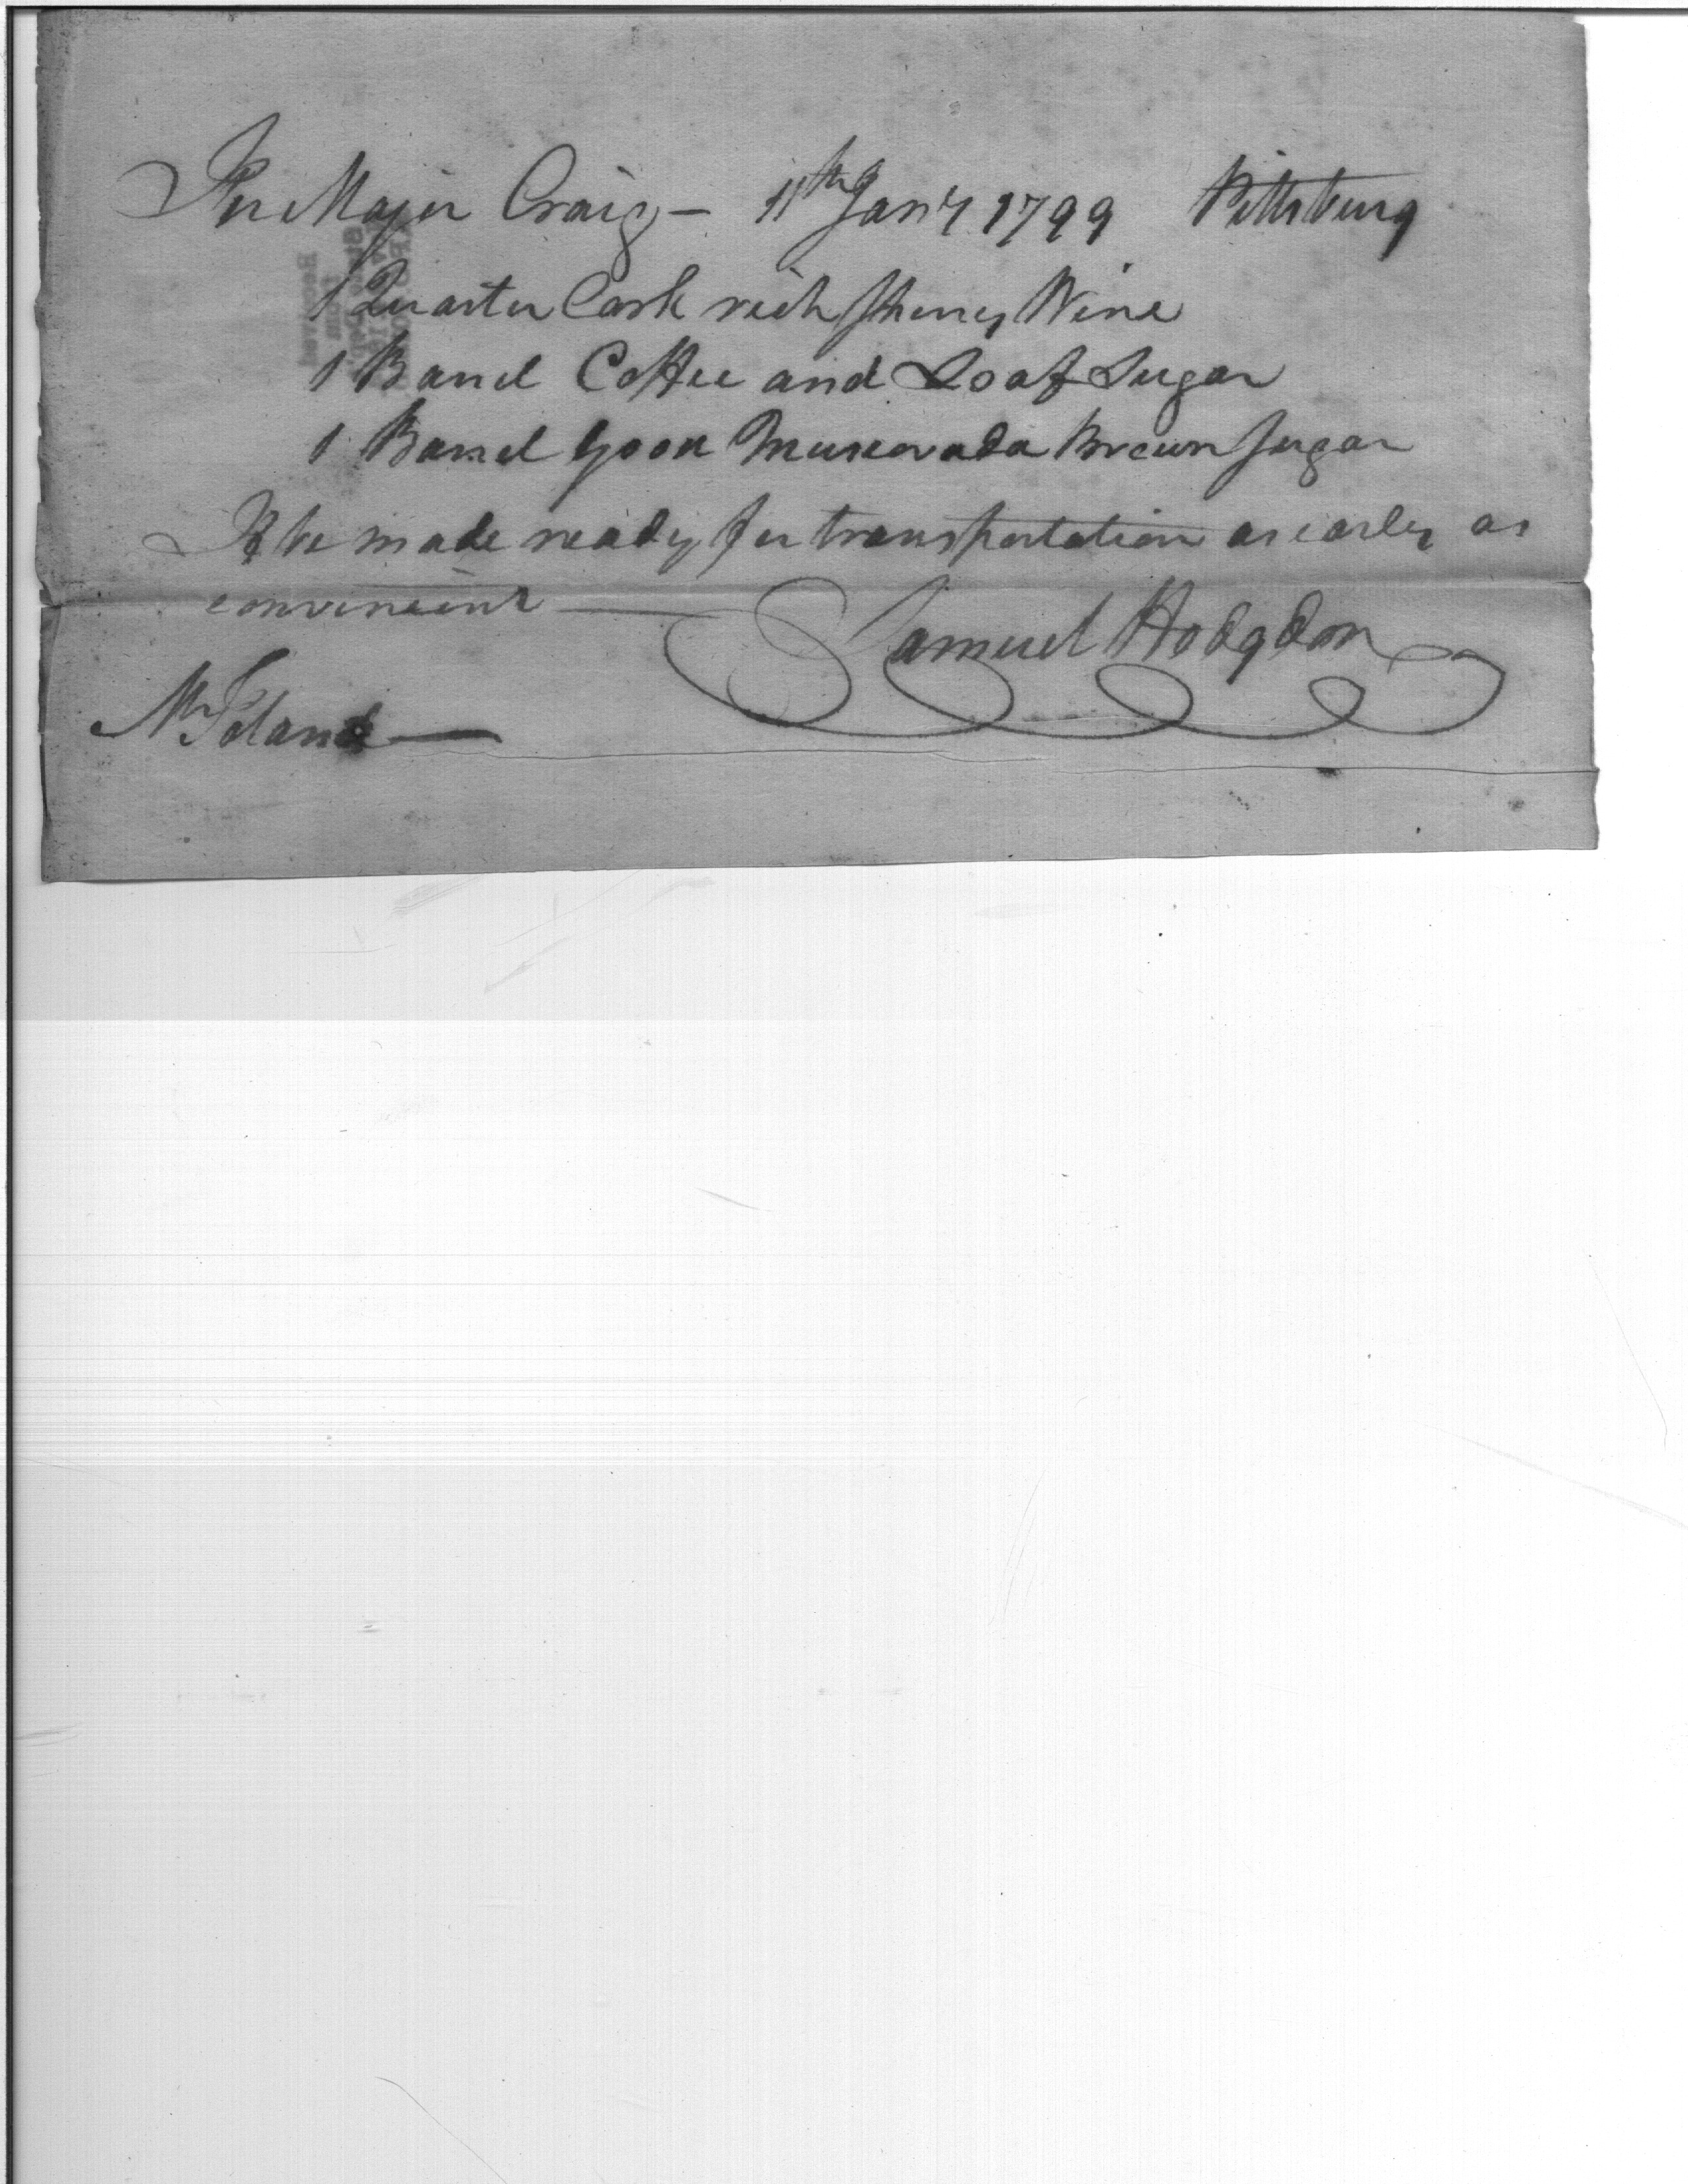 For Major Craig – 11th Jany 1799 Pittsburg
1 Quarter Cask rich Sherry Wine
1 Barrel Coffee and Loaf Sugar
1 Barrel Good Muscovada Brown Sugar
To be made ready for transportation as early as
convenient —
Samuel Hodgdon
Mr Toland —